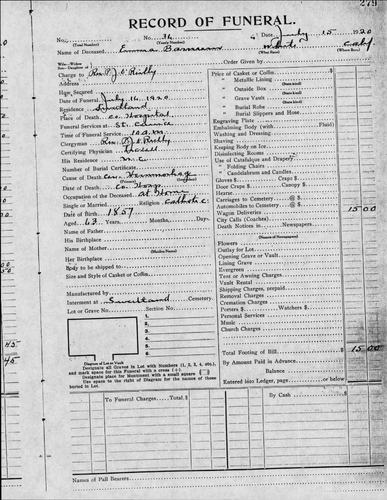 279
RECORD OF FUNERAL.
No. 36 July 15 1920
(Total Number) (Yearly Number)
Name of Deceased Emma White Calif
(What Race) (Where Born)
Charge to Rev. P. J. O'Reilly Order Given by
Address
How Secured
Date of Funeral July 16, 1920
Residence
Place of Death Co. Hospital
Funeral Services at St.
Time of Funeral Services 10 a.m.
Clergyman Rev. P. J. O'Reilly
Certifying Physician
His Residence
Number of Burial Certificate
Cause of Death Hemorrhage
Date of Death Co. Hosp
Occupation of the Deceased at Home
Single or Married Religion Catholic
Date of Birth 1857
Aged 63 Years, Months, Days
Name of Father
His Birthplace
Name of Mother
Her Birthplace
Body to be shipped to
Size and Style of Casket or Coffin
Manufactured by
Interment at Cemetery
Lot or Grave No. Section No.
1.
2.
3.
4.
5.
6.
7.
8.
Diagram of Lot or Vault
Designate all Graves in Lot with Numbers (1, 2, 3, 4, etc.),
and mark space for this Funeral with a cross (+)
Designate place for Monument with a small square
Use space to the right of Diagram for the names of those
buried in Lot
Price of Casket or Coffin
" Metallic Lining
(State kind)
" Outside Box
(State kind)
" Grave Vault
(State kind)
" Burial Robe
(State kind)
" Burial Slippers and Hose
Engraving Plate
Embalming Body (with Fluid)
Washing and Dressing
Shaving
Keeping Body on Ice
Disinfecting Rooms
Use of Catafalque and Drapery
" Folding Chairs
" Candelabrum and Candles
Gloves $ Crape $
Door Crape $ Canopy $
Hearse
Carriages to Cemetery @ $
Automobiles to Cemetery @ $
Wagon Deliveries 15 00
City Calls (Coaches)
Death Notices in Newspapers
(Names of Newspapers)
Flowers
Outlay for Lot
Opening Grave or Vault
Lining Grave
Evergreen
Tent or Awning Charges
Vault Rental
Shipping Charges, prepaid
Removal Charges
Cremation Charges
Porters $ Watchers $
Personal Services
Music
Church Charges
Total Footing of Bill 15 00
By Amount Paid in Advance
Balance
Entered into Ledger, page or below
To Funeral Charges, Total $ By Cash $
Names of Pall Bearers
45
45